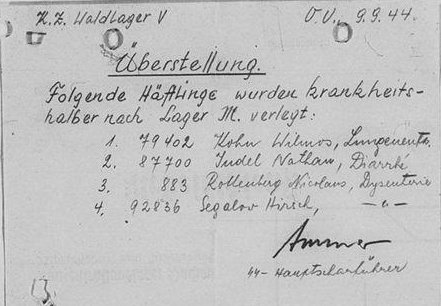 K.Z. Waldlager V O.U., 9.9.44.
Überstellung.
Folgende Häftlinge wurden krankheits-
halber nach Lager M. verlegt:
1. 79402 Kohn Wilmos, Lungenentz.
2. 87700 Indel Nathan, Diarrhö
3. 883 Rottenberg Nicolaus, Dysenterie
4. 92836 Segalow Hirsch, -"-
44-Hauptscharführer
13.